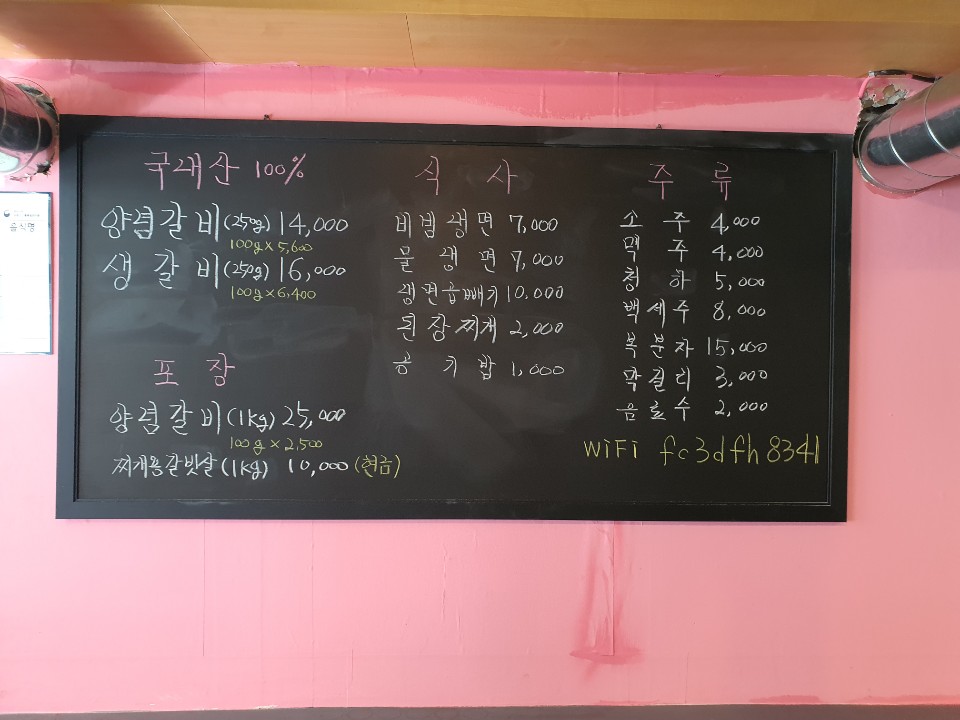 국내산 100%
양념갈비(250g) 14,000
100g×5,600
생갈비(250g) 16,000
100g×6,400
포장
양념갈비(1kg) 25,000
100g×2,500
찌개용갈빗살(1kg) 10,000 (현금)
식사
비빔냉면 7,000
물냉면 7,000
냉면곱빼기 10,000
된장찌개 2,000
공기밥 1,000
주류
소주 4,000
맥주 4,000
청하 5,000
백세주 8,000
복분자 15,000
막걸리 3,000
음료수 2,000
WiFi fc3dfh8341